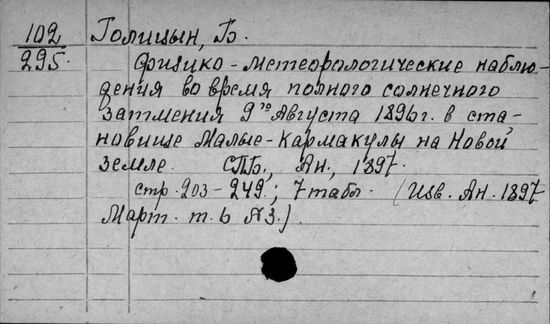 102 Голицын, Б.
295. Физико-метеорологические наблю-
дения во время полного солнечного
затмения 9го Августа 1896г. в ста-
новище Малые-Кармакулы на Новой
земле. СПБ., Ан., 1897.
стр. 203-249.; 7 табл. (Изв. Ан. 1897
Март. т. 6 №3.)